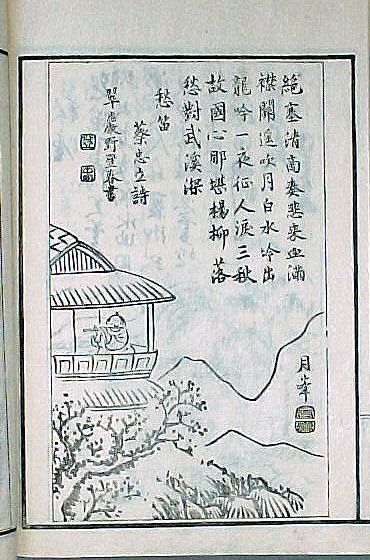 絶塞清商奏悲来血滿
襟關遙吹月白水冷出
龍吟一夜征人涙三秋
故國心那堪楊柳落
愁對武溪深
愁笛
蔡忠立詩
翠巖野 書
月峯